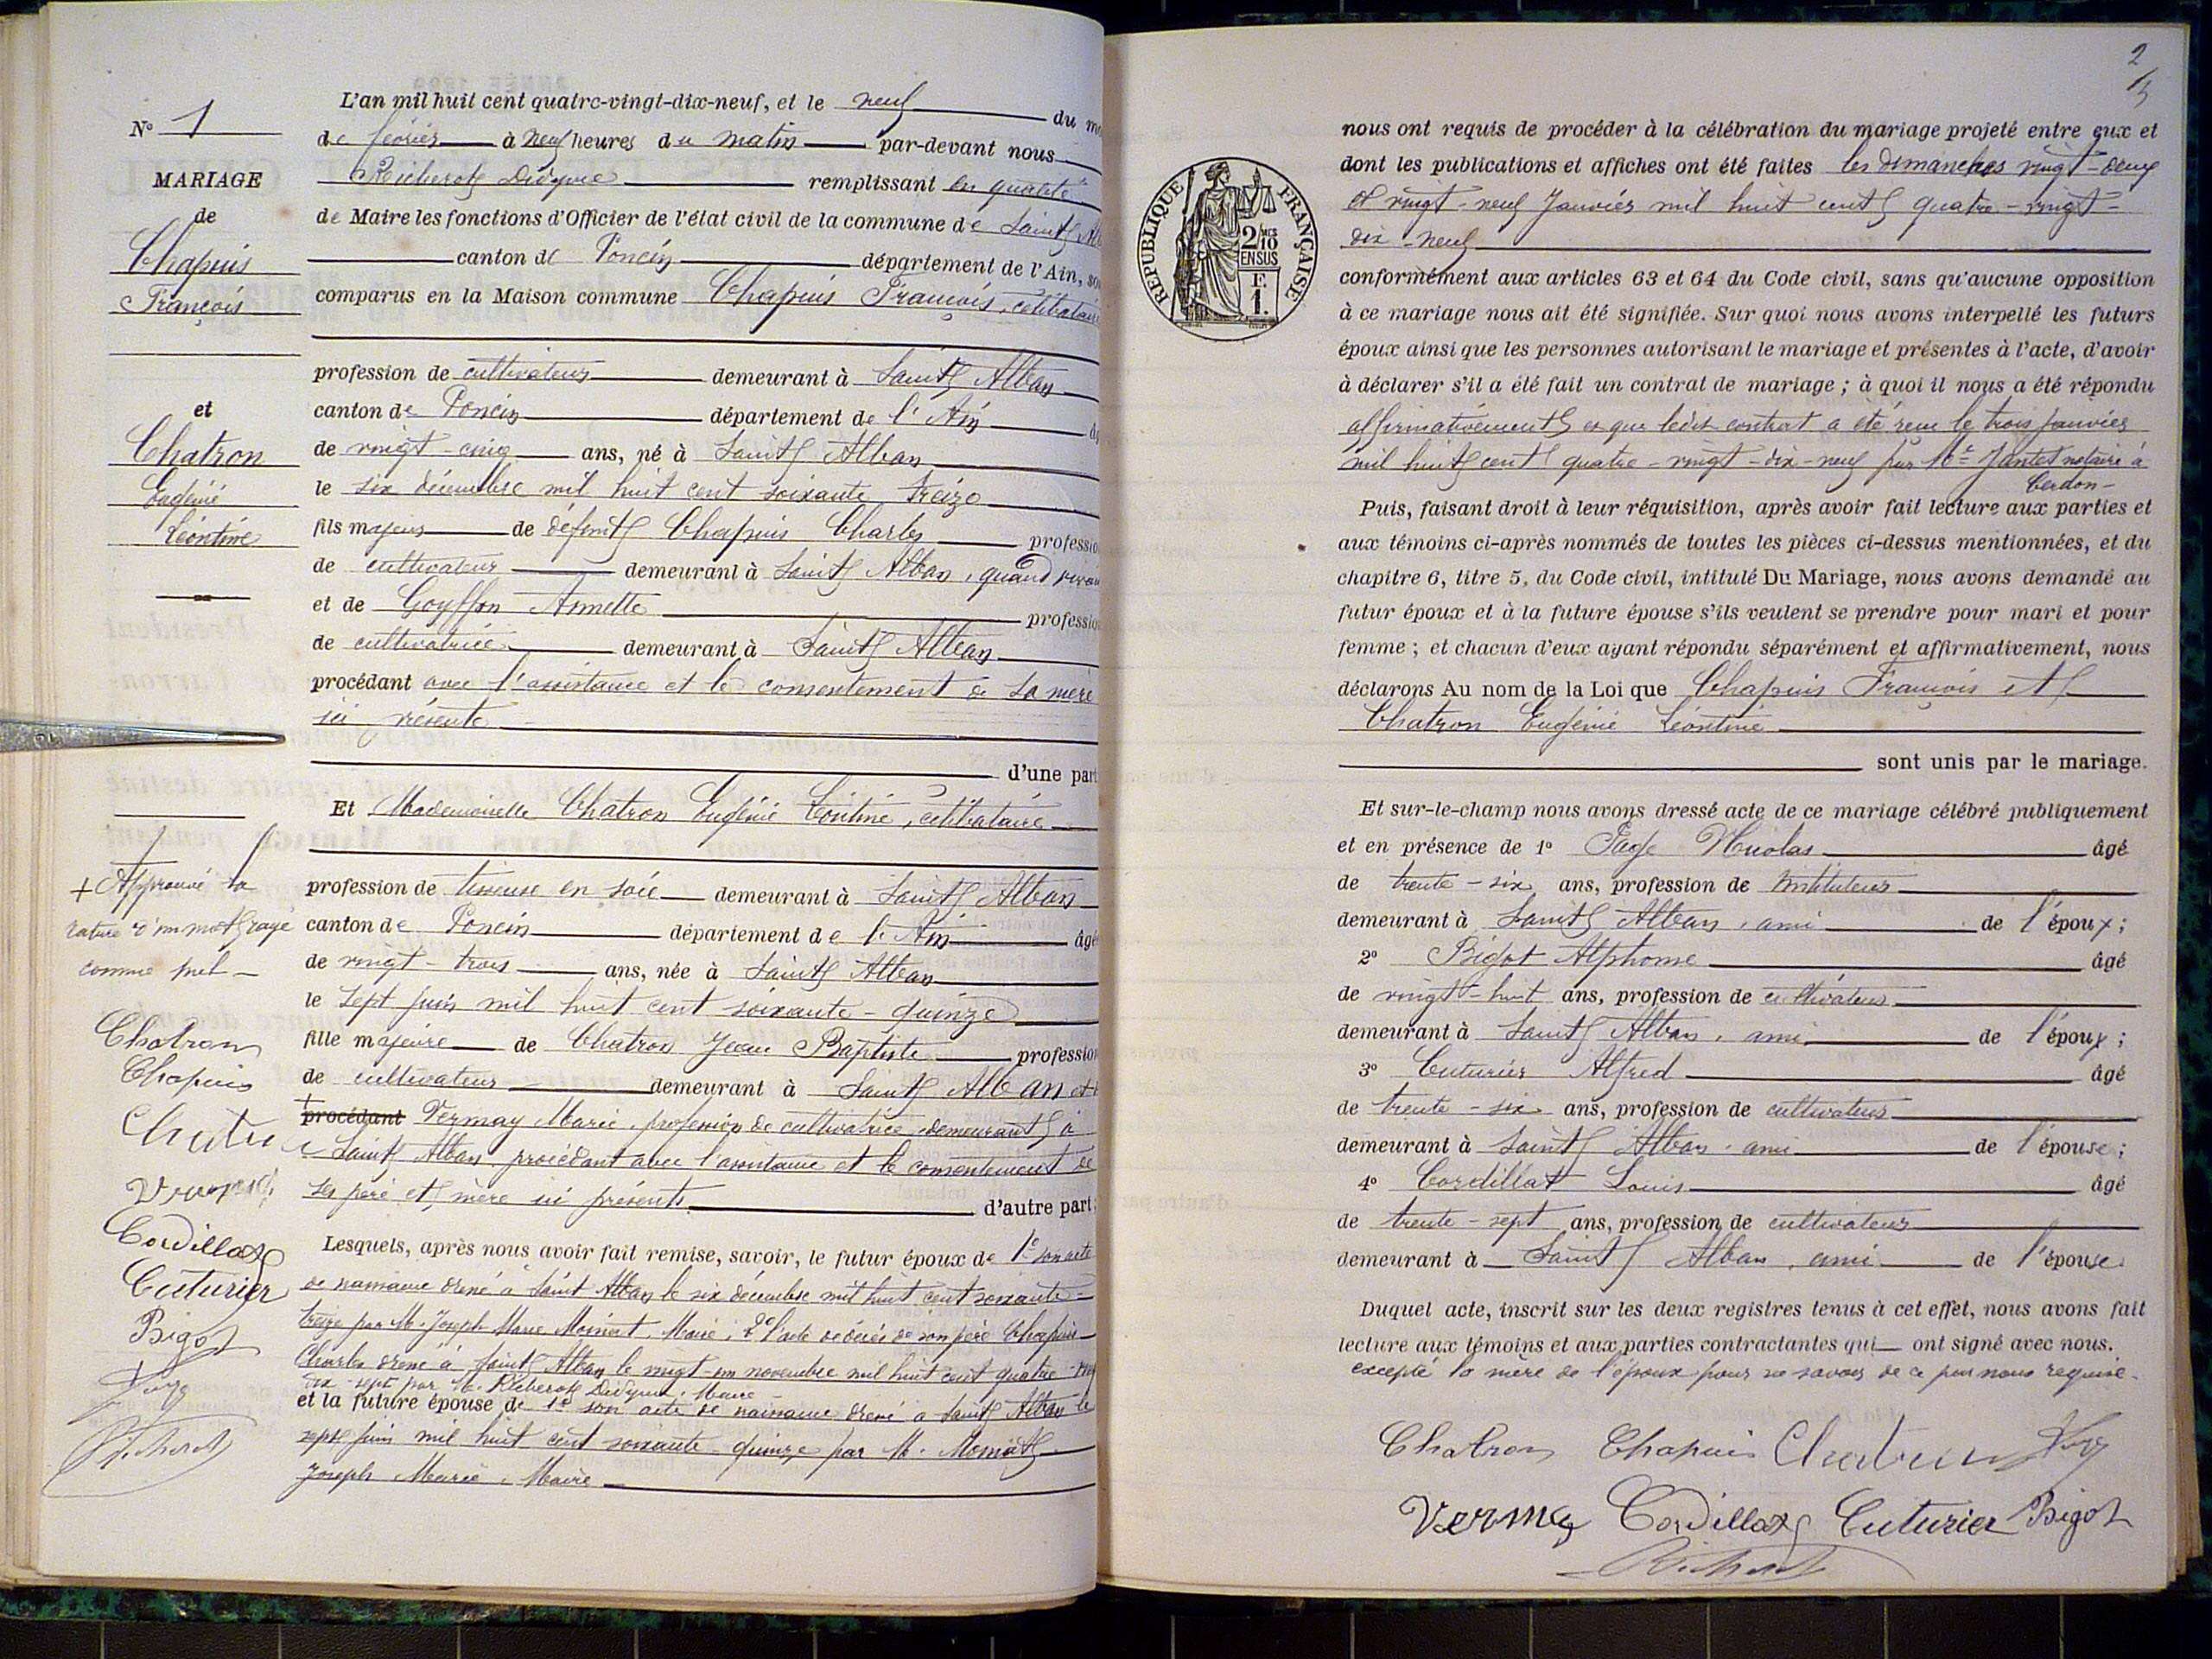 N° 1
MARIAGE
de
Chapuis
François
et
Chatron
Eugénie
Léontine
+ Approuvé la
rature d'un mot rayé
comme nul -
Chatron
Chapuis
Cordillat
Cuturier
Bigot
L'an mil huit cent quatre-vingt-dix-neuf, et le neuf du
de février à neuf heures du matin par-devant nous
Richerot Didyme remplissant en qualité
de Maire les fonctions d'Officier de l'état civil de la commune de Saint
canton de Poncin département de l'Ain,
comparus en la Maison commune Chapuis François, célibataire
profession de cultivateur demeurant à Saint Alban
canton de Poncin département de l'Ain
de vingt-cinq ans, né à Saint Alban
le six décembre mil huit cent soixante treize
fils majeur de défunt Chapuis Charles
de cultivateur demeurant à Saint Alban, quand
et de Goyffon Annette
de cultivatrice demeurant à Saint Alban
procédant avec l'assistance et le consentement de sa mère
ici présente
d'une part
Et Mademoiselle Chatron Eugénie Léontine, célibataire
profession de tisseuse en soie demeurant à Saint Alban
canton de Poncin département de l'Ain âgé
de vingt-trois ans, née à Saint Alban
le sept juin mil huit cent soixante-quinze
fille majeure de Chatron Jean Baptiste profession
de cultivateur demeurant à Saint Alban et
+ procédant Vermay Marie, profession de cultivatrice, demeurant à
Saint Alban, procédant avec l'assistance et le consentement de
ses père et mère ici présents d'autre part;
Lesquels, après nous avoir fait remise, savoir, le futur époux de 1° son acte
de naissance dressé à Saint Alban le six décembre mil huit cent soixante-
treize par M. Joseph Marie Maire; 2° l'acte de décès de son père Chapuis
Charles dressé à Saint Alban le vingt-un novembre mil huit cent quatre-
dix-sept par M. Richerot Didyme, Maire
et la future épouse de 1° son acte de naissance dressé à Saint Alban le
sept juin mil huit cent soixante-quinze par M.
Joseph Marie, Maire
2
RÉPUBLIQUE FRANÇAISE
2/10 EN SUS
F. 1.
nous ont requis de procéder à la célébration du mariage projeté entre eux et
dont les publications et affiches ont été faites les dimanches vingt-deux
et vingt-neuf Janvier mil huit cent quatre-vingt-
dix-neuf
conformément aux articles 63 et 64 du Code civil, sans qu'aucune opposition
à ce mariage nous ait été signifiée. Sur quoi nous avons interpellé les futurs
époux ainsi que les personnes autorisant le mariage et présentes à l'acte, d'avoir
à déclarer s'il a été fait un contrat de mariage ; à quoi il nous a été répondu
affirmativement et que ledit contrat a été reçu le trois janvier
mil huit cent quatre-vingt-dix-neuf par Me Jantet notaire à
Cerdon-
Puis, faisant droit à leur réquisition, après avoir fait lecture aux parties et
aux témoins ci-après nommés de toutes les pièces ci-dessus mentionnées, et du
chapitre 6, titre 5, du Code civil, intitulé Du Mariage, nous avons demandé au
futur époux et à la future épouse s'ils veulent se prendre pour mari et pour
femme ; et chacun d'eux ayant répondu séparément et affirmativement, nous
déclarons Au nom de la Loi que Chapuis François et
Chatron Eugénie Léontine
sont unis par le mariage.
Et sur-le-champ nous avons dressé acte de ce mariage célébré publiquement
et en présence de 1° Nicolas âgé
de trente-six ans, profession de Instituteur
demeurant à Saint Alban, ami de l'époux;
2° Bigot Alphonse âgé
de vingt-huit ans, profession de cultivateur
demeurant à Saint Alban, ami de l'époux;
3° Cuturier Alfred âgé
de trente-six ans, profession de cultivateur
demeurant à Saint Alban, ami de l'épouse;
4° Cordillat Louis âgé
de trente-sept ans, profession de cultivateur
demeurant à Saint Alban, ami de l'épouse
Duquel acte, inscrit sur les deux registres tenus à cet effet, nous avons fait
lecture aux témoins et aux parties contractantes qui ont signé avec nous.
excepté la mère de l'époux pour ne savoir de ce par nous requise.
Chatron Chapuis Chatron
Vermay Cordillat Cuturier Bigot